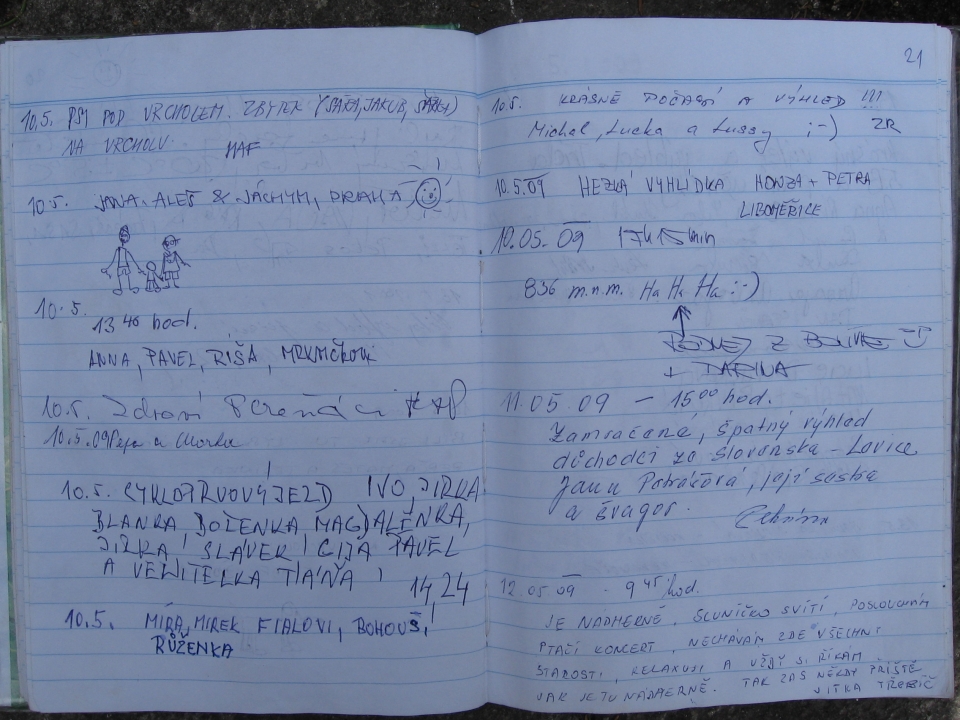 10.5. PSI POD VRCHOLEM. ZBYTEK (SAŘA, JAKUB,
NA VRCHOLU. HAF
10.5. JANA, ALEŠ & JÁCHYM, PRAHA
10.5.
13 40 hod.
ANNA, PAVEL, RIŠA,
10.5. Zdraví
10.5.09 Pepa a
10.5. IVO, JIRKA
BLANKA BOŽENKA MAGDALÉNKA,
JIRKA, SLÁVEK, PAVEL
A VELITELKA TÁŇA! 14,24
10.5. MÍRA, MIREK FIALOVI, BOHOUŠ,
RŮŽENKA
21
10.5. KRÁSNÉ POČASÍ A VÝHLED !!!
Michal, Lucka a Lussy ;-) ZR
10.5.09 HEZKÁ VYHLÍDKA HONZA + PETRA
LIBOMĚŘICE
10.05.09 17h 15min
836 m.n.m. Ha Ha Ha :-)
Z
+ DARINA
11.05.09 – 15 00 hod.
Zamračené, špatný výhled
důchodci ze Slovenska – Lovice
Jana její sestra
a švagor.
12.05.09 - 9 45 hod.
JE NÁDHERNĚ, SLUNÍČKO SVÍTÍ, POSLOUCHÁM
PTAČÍ KONCERT, NECHÁVÁM ZDE VŠECHNY
STAROSTI, RELAXUJI A VŽDY SI ŘÍKÁM
JAK JE TU NÁDHERNĚ. TAK ZAS NĚKDY PŘÍŠTĚ
JITKA TŘEBÍČ